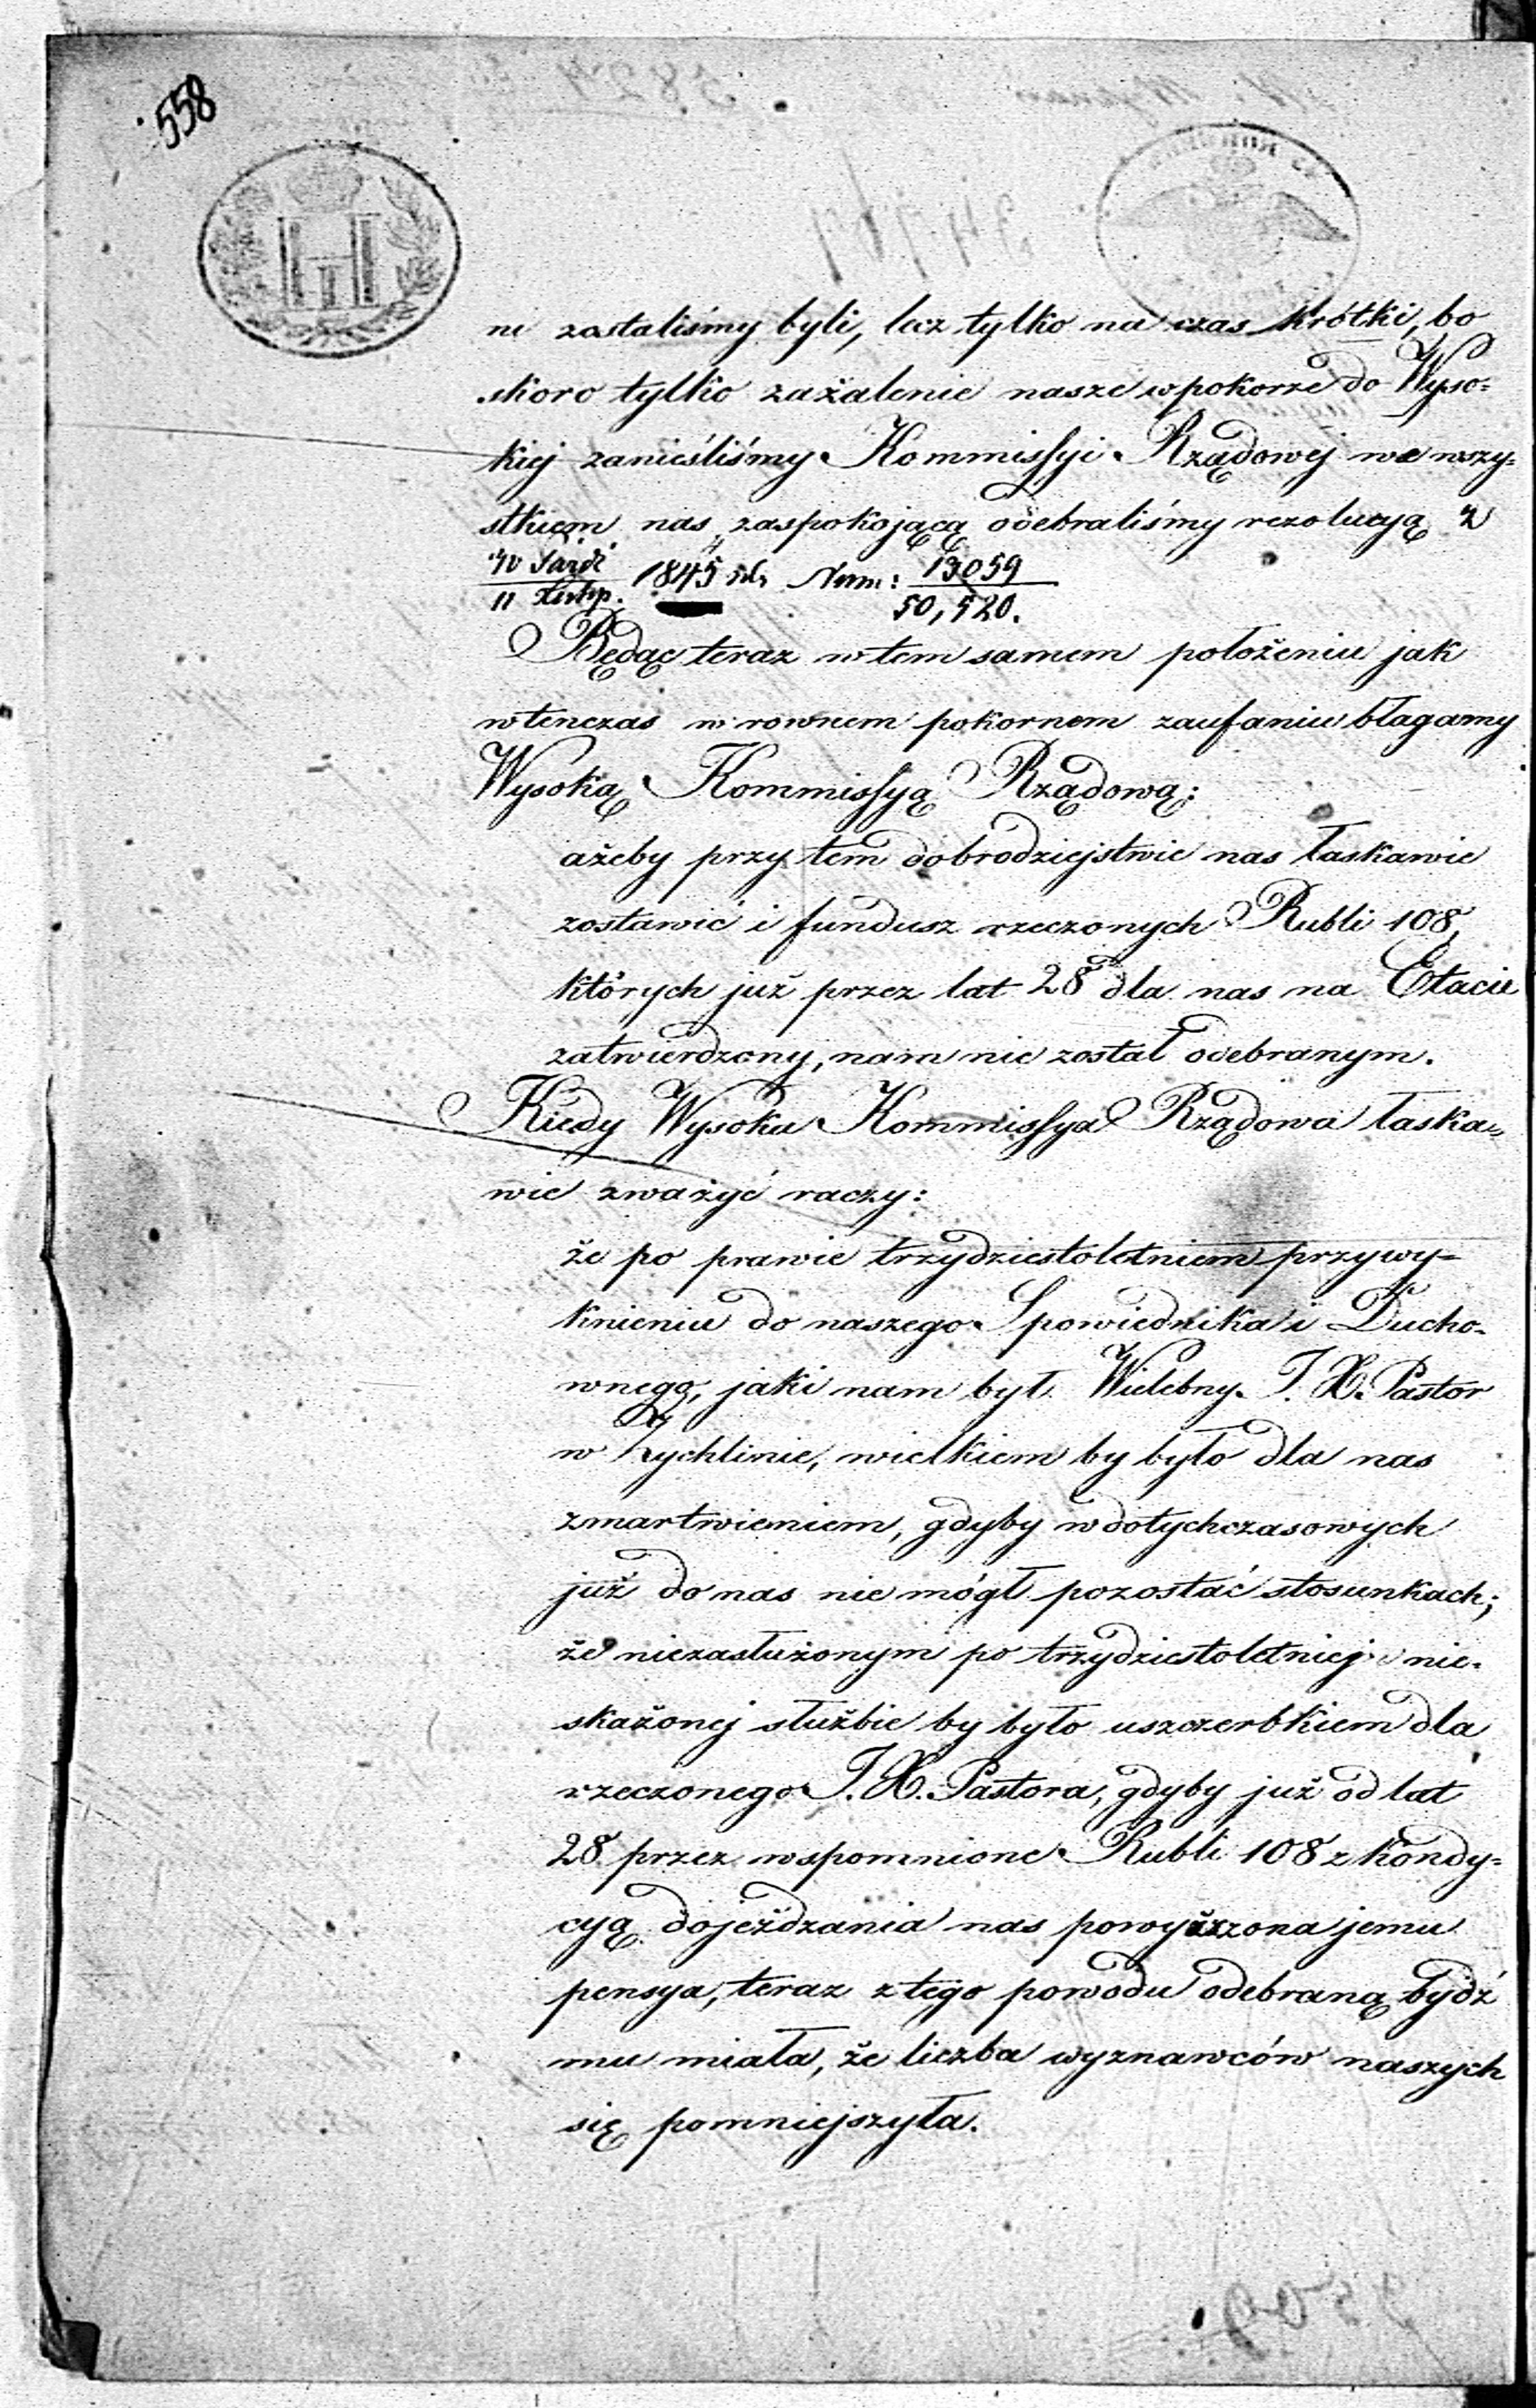 558
ni zostaliśmy byli, lecz tylko na czas krótki, bo
skoro tylko zażalenie nasze w pokorze do Wyso=
kiej zanieśliśmy Kommissyi Rządowej we wszy=
stkiem nas zaspokojącą odebraliśmy rezolucyą z
30 Paźdź. / 11 Listop. 1845 Num: 13059 / 50,520.
Będąc teraz w tem samem położeniu jak
wtenczas w rownem pokornem zaufaniu błagamy
Wysoką Kommissyą Rządową:
ażeby przy tem dobrodziejstwie nas łaskawie
zostawić i fundusz rzeczonych Rubli 108,
których już przez lat 28 dla nas na Etacie
zatwierdzony, nam nie został odebranym.
Kiedy Wysoka Kommissya Rządowa łaska=
wie zważyć raczy:
że po prawie trzydziestoletniem przywy=
knieniu do naszego Spowiednika i Ducho=
wnego, jaki nam był Wielebny J. X. Pastor
w Żychlinie, wielkiem by było dla nas
zmartwieniem, gdyby w dotychczasowych
już do nas nie mógł pozostać stosunkach;
że niezasłużonym po trzydziestoletniej nie=
skażonej służbie by było uszczerbkiem dla
rzeczonego J. X. Pastora, gdyby już od lat
28 przez wspomnione Rubli 108 z kondy=
cyą dojeżdzania nas powyższona jemu
pensya, teraz z tego powodu odebraną bydź
mu miała, że liczba wyznawców naszych
się pomniejszyła.